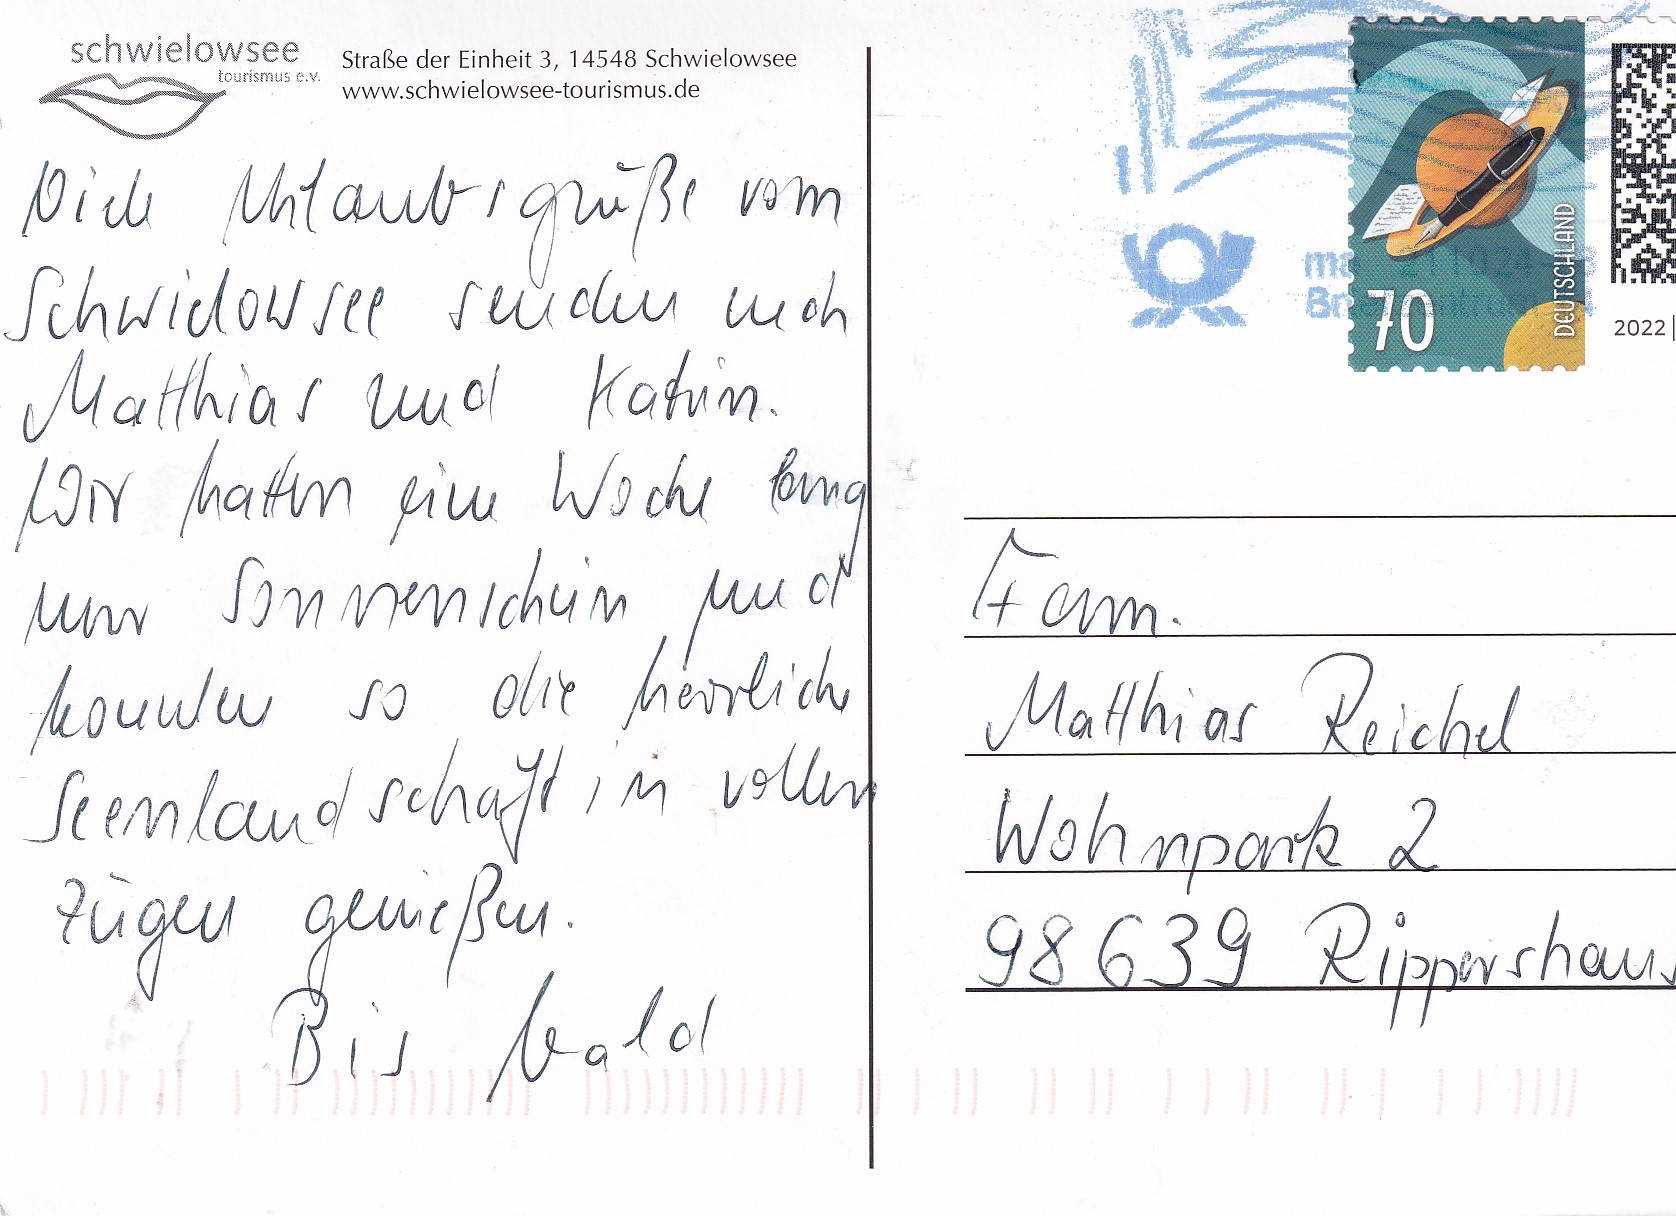 schwielowsee
tourismus e.v.
Straße der Einheit 3, 14548 Schwielowsee
www.schwielowsee-tourismus.de
Viele Urlaubsgrüße vom
Schwielowsee senden euch
Matthias und Katrin.
Wir hatten eine Woche lang
nur Sonnenschein und
konnten so die herrliche
Seenlandschaft in vollen
Zügen genießen.
Bis bald
DEUTSCHLAND
70
2022
Fam.
Matthias Reichel
Wohnpark 2
98639 Rippershaus